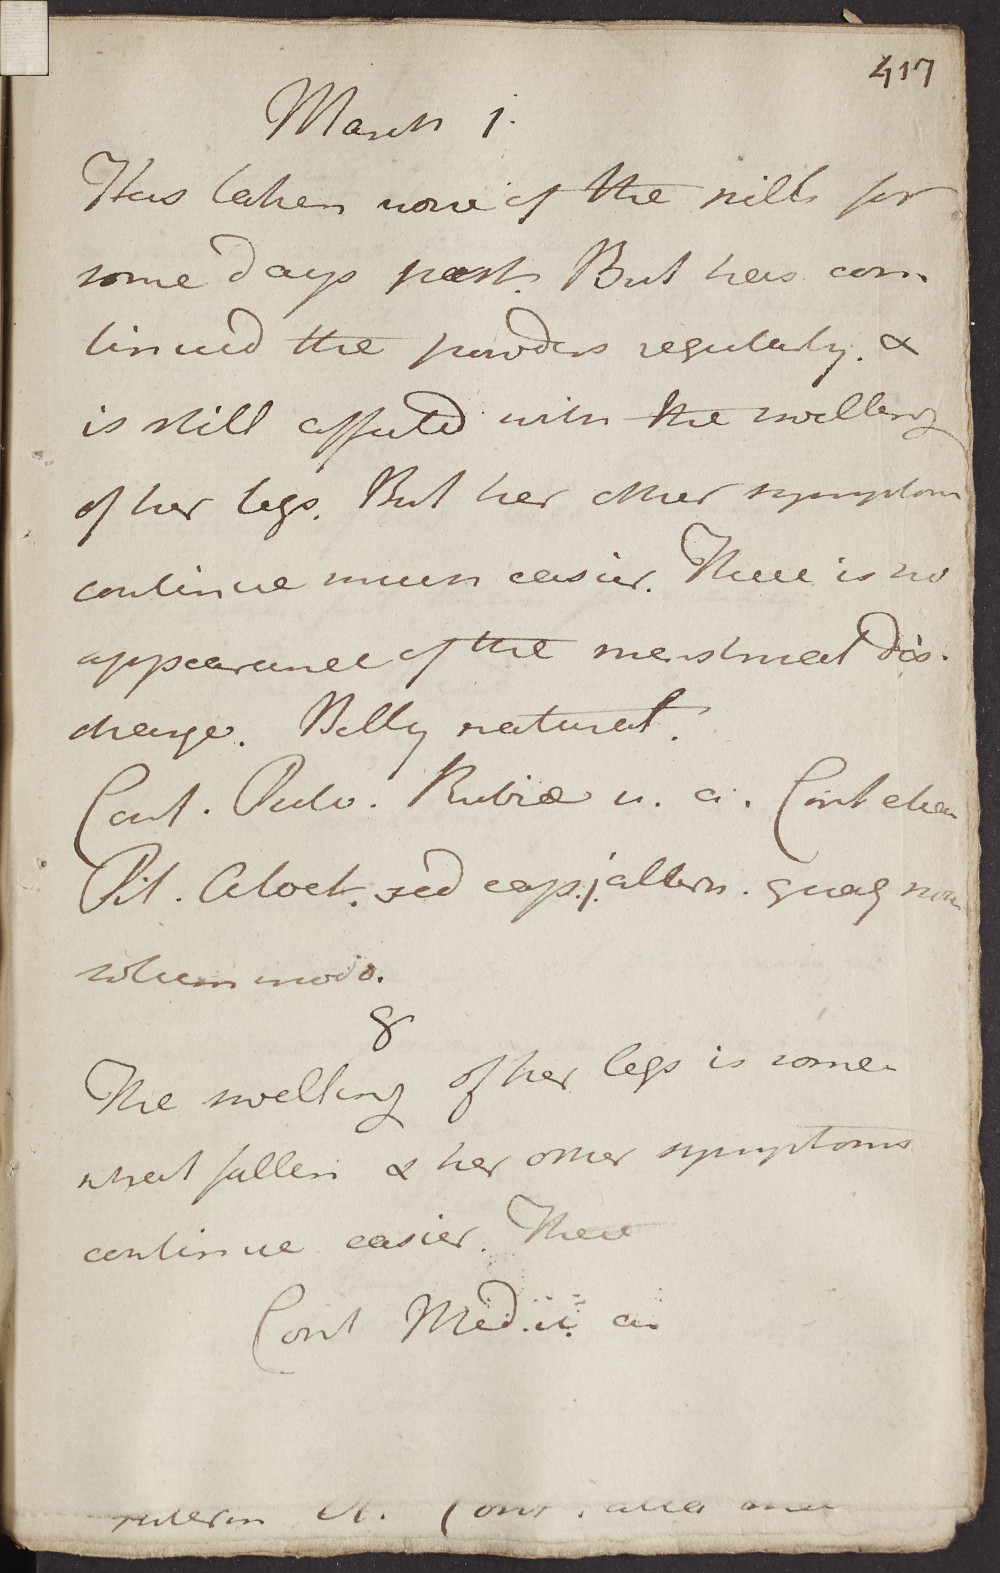 417
March 1.
Has taken none of the pills for
some days past. But has con-
tinued the powders regularly. &
is still affected with the swelling
of her legs. But her other symptoms
continue much easier. There is no
appearance of the menstrual dis-
charge. Belly natural.
Cont. Pulv. Rubiæ u. a. Cont etiam
Pil. Aloet. sed cap. j. altern. quaq noct
solummodo.
8
The swelling of her legs is some-
what fallen & her other symptoms
continue easier. There
Cont Med. u. a.